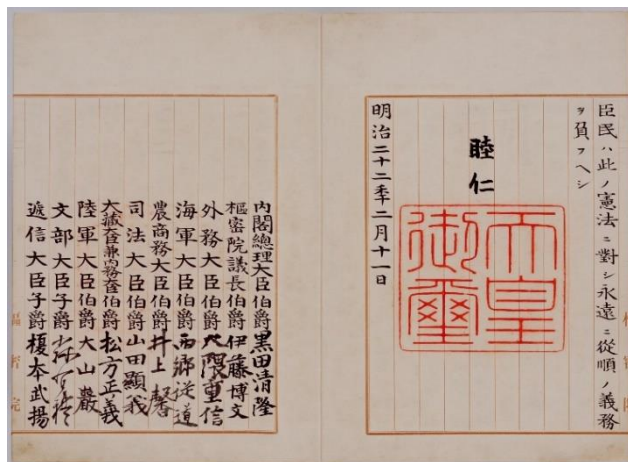 臣民ハ此ノ憲法ニ對シ永遠ニ從順ノ義務
ヲ負フヘシ
睦仁
天皇
御璽
明治二十二年二月十一日
內閣總理大臣伯爵黑田清隆
樞密院議長伯爵伊藤博文
外務大臣伯爵大隈重信
海軍大臣伯爵西鄉從道
農商務大臣伯爵井上馨
司法大臣伯爵山田顯義
大藏大臣兼內務大臣伯爵松方正義
陸軍大臣伯爵大山巖
文部大臣子爵
遞信大臣子爵榎本武揚